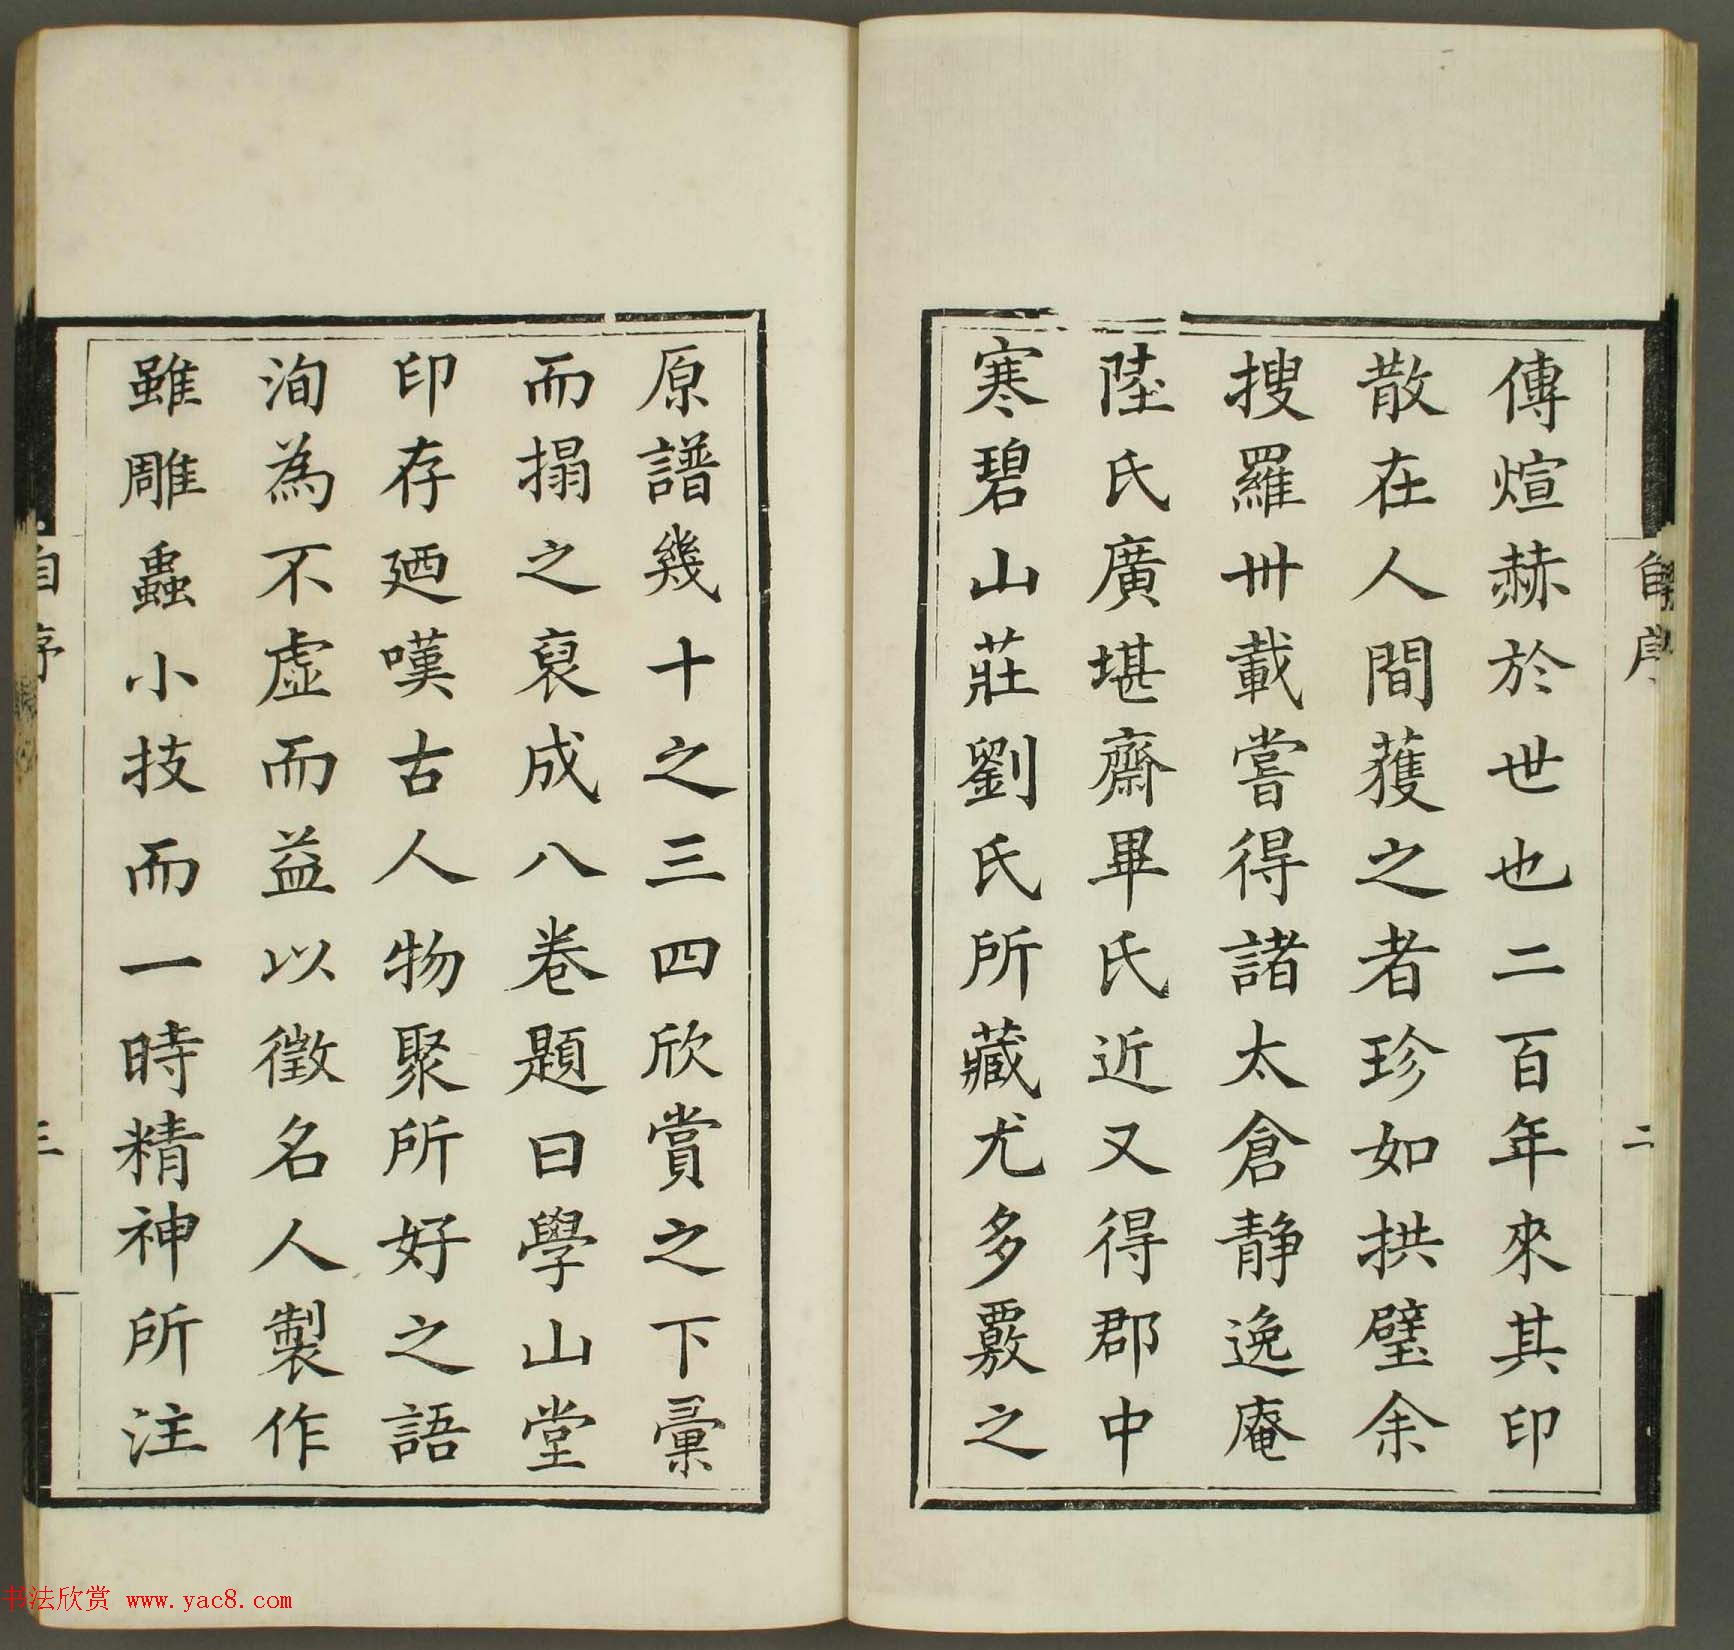 自序
二
傳煊赫於世也二百年來其印
散在人間蒦之者珍如拱璧余
搜羅卅載嘗得諸太倉静逸庵
陸氏廣堪齋畢氏近又得郡中
寒碧山莊劉氏所藏尤多覈之
原譜幾十之三四欣賞之下彙
而搨之裒成八卷題曰學山堂
印存廼嘆古人物聚所好之語
洵為不虛而益以徵名人製作
雖雕蟲小技而一時精神所注
自序
三
书法欣赏 www.yac8.com